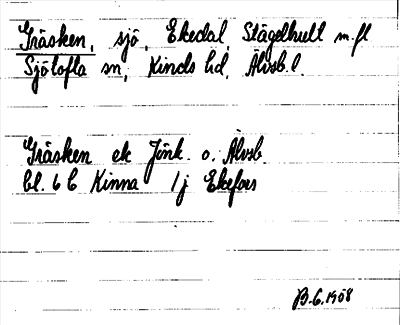 Gräsken, sjö, Ekedal, Stägelhult m.fl
Sjötofla sn, Kinds hd, Älvsb.l.
Gräsken ek Jönk. o. Älvsb.
bl. 6 C Kinna 1j Ekefors
B.6.1908